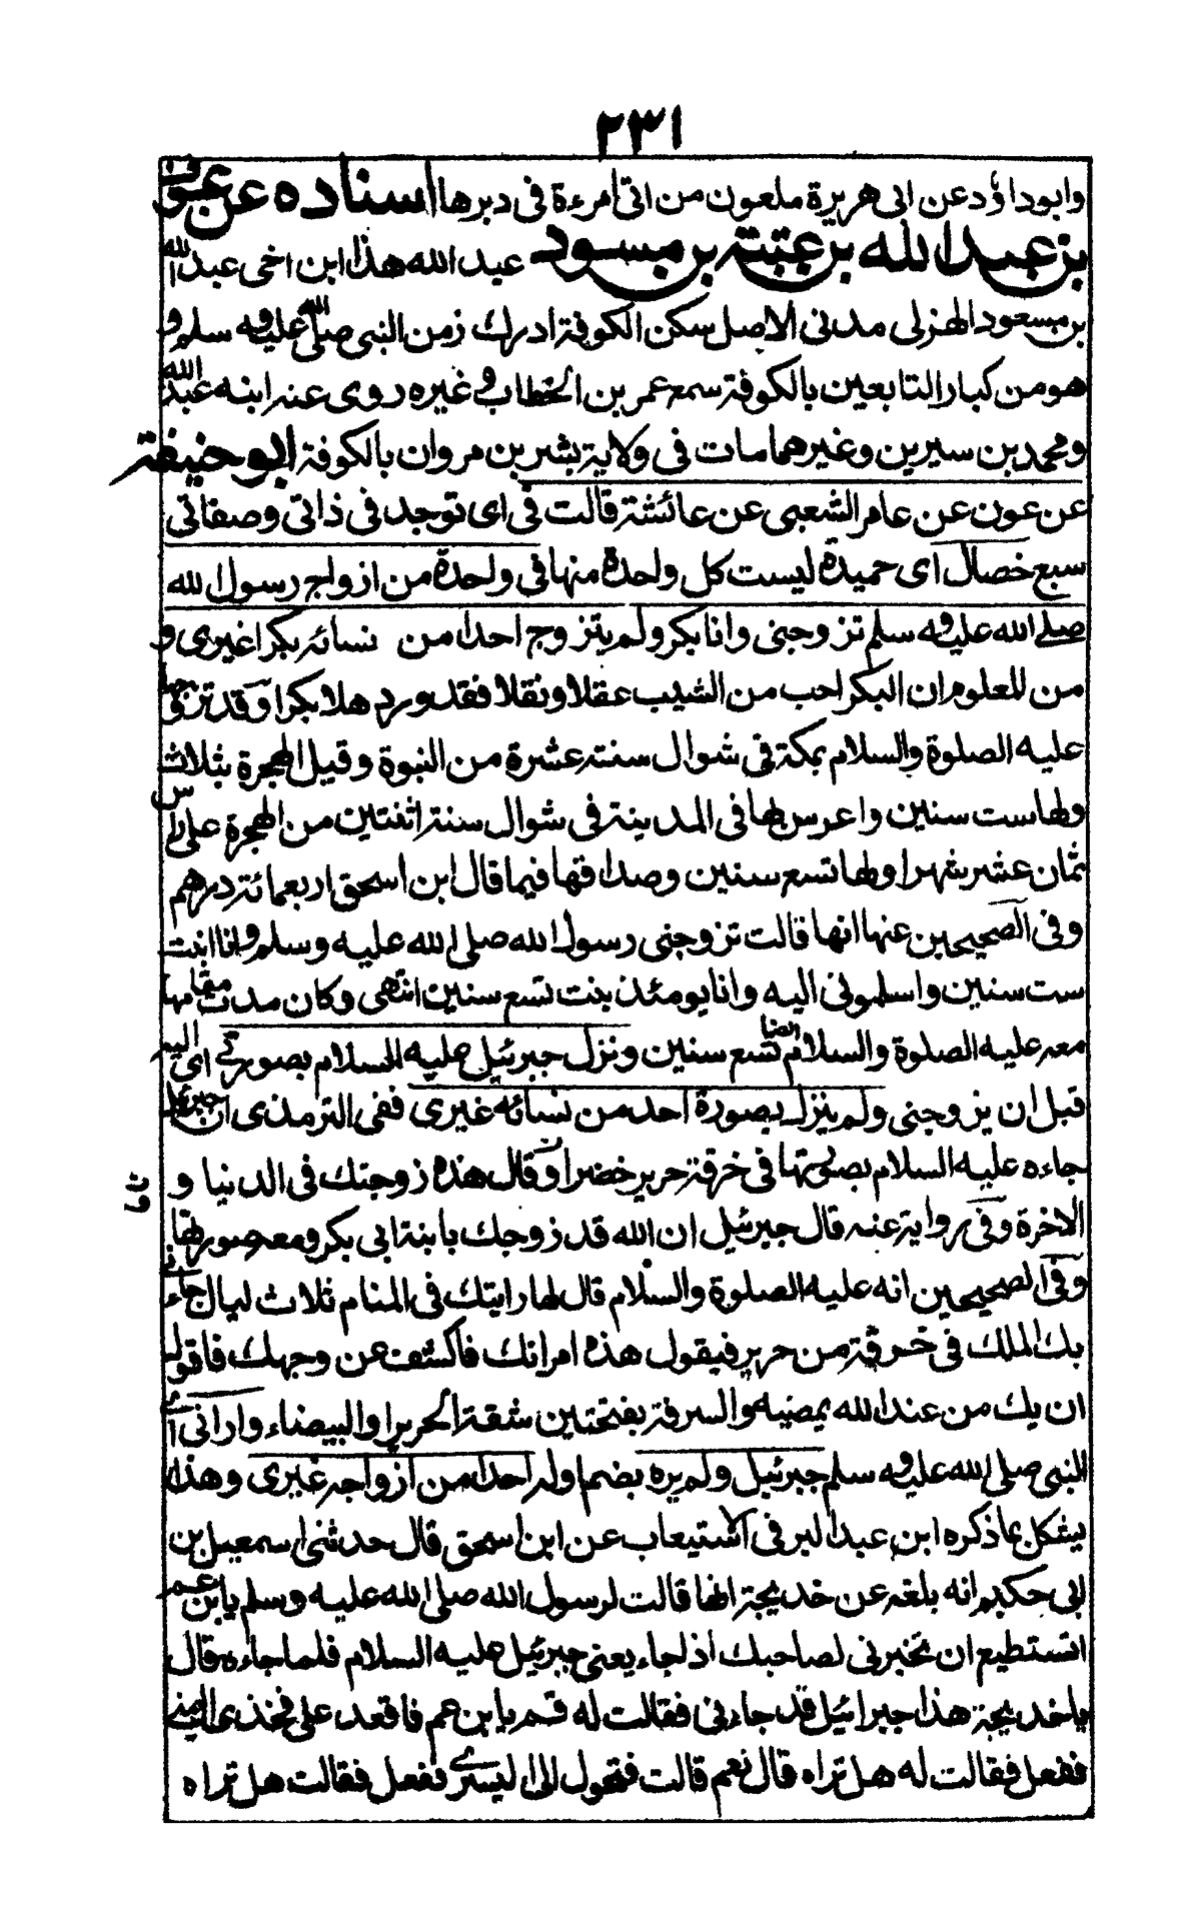 ٢٣١
وابوداؤد عن ابی هریرة ملعون من اتی امرءة فی دبرها اسناده عن عون
بن عبد الله بن عتبة بن مسعود عبد الله هذا ابن اخی عبد الله
بن مسعود الهزلی مدنی الاصل سکن الکوفة ادرك زمن النبی صلی الله علیه و سلم و
هو من کبار التابعین بالکوفة سمع عمر بن الخطاب و غیره روی عنه ابنه عبد الله
ومحمد بن سیرین وغیرهما مات فی ولایة بشر بن مروان بالکوفة ابو حنیفة
عن عون عن عامر الشعبی عن عائشة قالت فی ای توجد فی ذاتی وصفاتی
سبع خصال ای حمیدة لیست کل واحدة منها فی واحدة من ازواج رسول الله
صلے الله علیه و سلم تزوجنی وانا بکر ولم یتزوج احدا من نسائه بکرا غیری و
من المعلوم ان البکر احب من الثیب عقلا ونقلا فقد ورد هلا بکرا وقد تزوجها
علیه الصلوة والسلام بمکة فی شوال سنة عشرة من النبوة وقیل الهجرة بثلاث
ولها ست سنین واعرس بها فی المدینة فی شوال سنة اثنتین من الهجرة علی راس
ثمان عشر شهرا ولها تسع سنین وصداقها فیما قال ابن اسحق اربعمائة درهم
وفی الصحیحین عنها انها قالت تزوجنی رسول الله صلی الله علیه وسلم وانا ابنت
ست سنین واسلمونی الیه وانا یومئذ بنت تسع سنین انتهی وکان مدت مقامها
معه علیه الصلوة والسلام ایضا تسع سنین ونزل جبرئیل علیه السلام بصورتے ای الیه
قبل ان یزوجنی ولم ینزل بصورة احد من نسائه غیری ففی الترمذی ان جبرئیل
جاءه علیه السلام بصورتها فی خرقة حریر خضراء وقال هذه زوجتك فی الدنیا و
الاخرة وفی روایة عنه قال جبرئیل ان الله قد زوجك بابنة ابی بکر ومعه صورتها
وفی الصحیحین انه علیه الصلوة والسلام قال لها رایتك فی المنام ثلاث لیال جاءنی
بك الملك فی خرقة من حریر فیقول هذه امراتك فاکشف عن وجهك فاقول
ان یك من عند الله یمضیه والسرقة بفتحتین شقة الحریر او البیضاء وارانی ای
النبی صلی الله علیه و سلم جبرئیل ولم یره بضم اوله احدا من ازواجه غیری وهذا
یشکل بما ذکره ابن عبد البر فی الاستیعاب عن ابن اسحق قال حدثنی اسمعیل بن
ابی حکیم انه بلغه عن خدیجة انها قالت لرسول الله صلی الله علیه وسلم یابن عم
اتستطیع ان تخبرنی لصاحبك اذا جاء یعنی جبرئیل علیه السلام فلما جاءه قال
یا خدیجة هذا جبرائیل قد جاءنی فقالت له قم یا بن عم فاقعد علی فخذی الیمنی
ففعل فقالت له هل تراه قال نعم قالت فتحول الی الیسری ففعل فقالت هل تراه